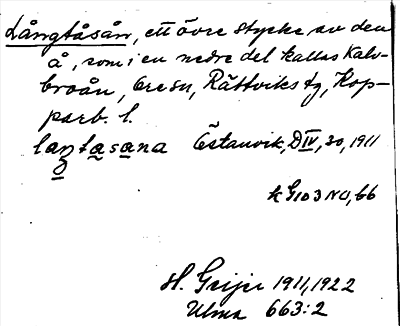 Långtåsån, ett övre stycke av den
å, som i en nedre del kallas Kalv-
broån, Ore sn, Rättviks tg, Kop-
parb. l.
Östanvik, D IV, 30, 1911
k G103 NO, 66
H. Geijer 1911, 1922
Ulma 663:2